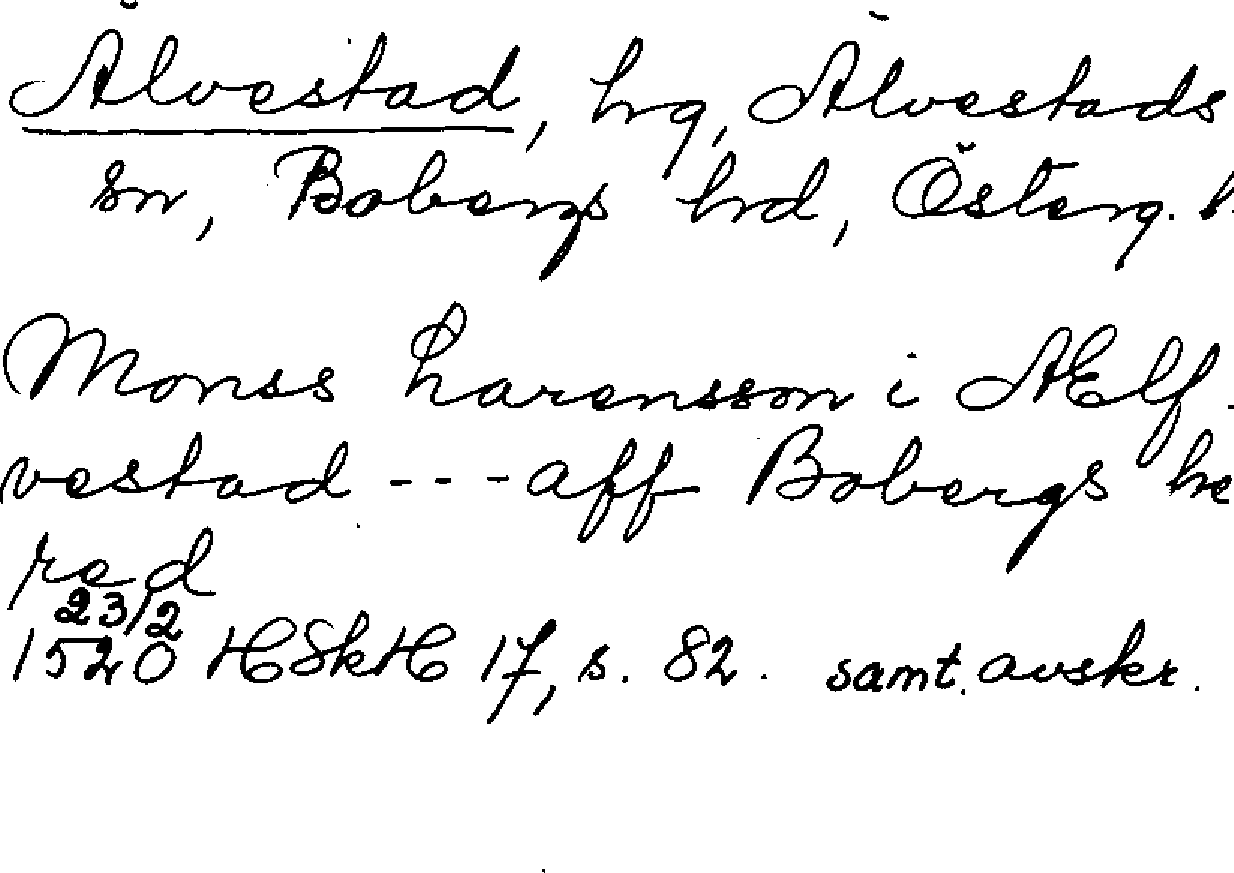 Älvestad, hrg, Älvestads
sn, Bobergs hrd, Österg. l.
Monss Larensson i Ælf-
vestad --- aff Bobergs he
red
23/2
1520 HSkH 17, s. 82. samt. avskr.